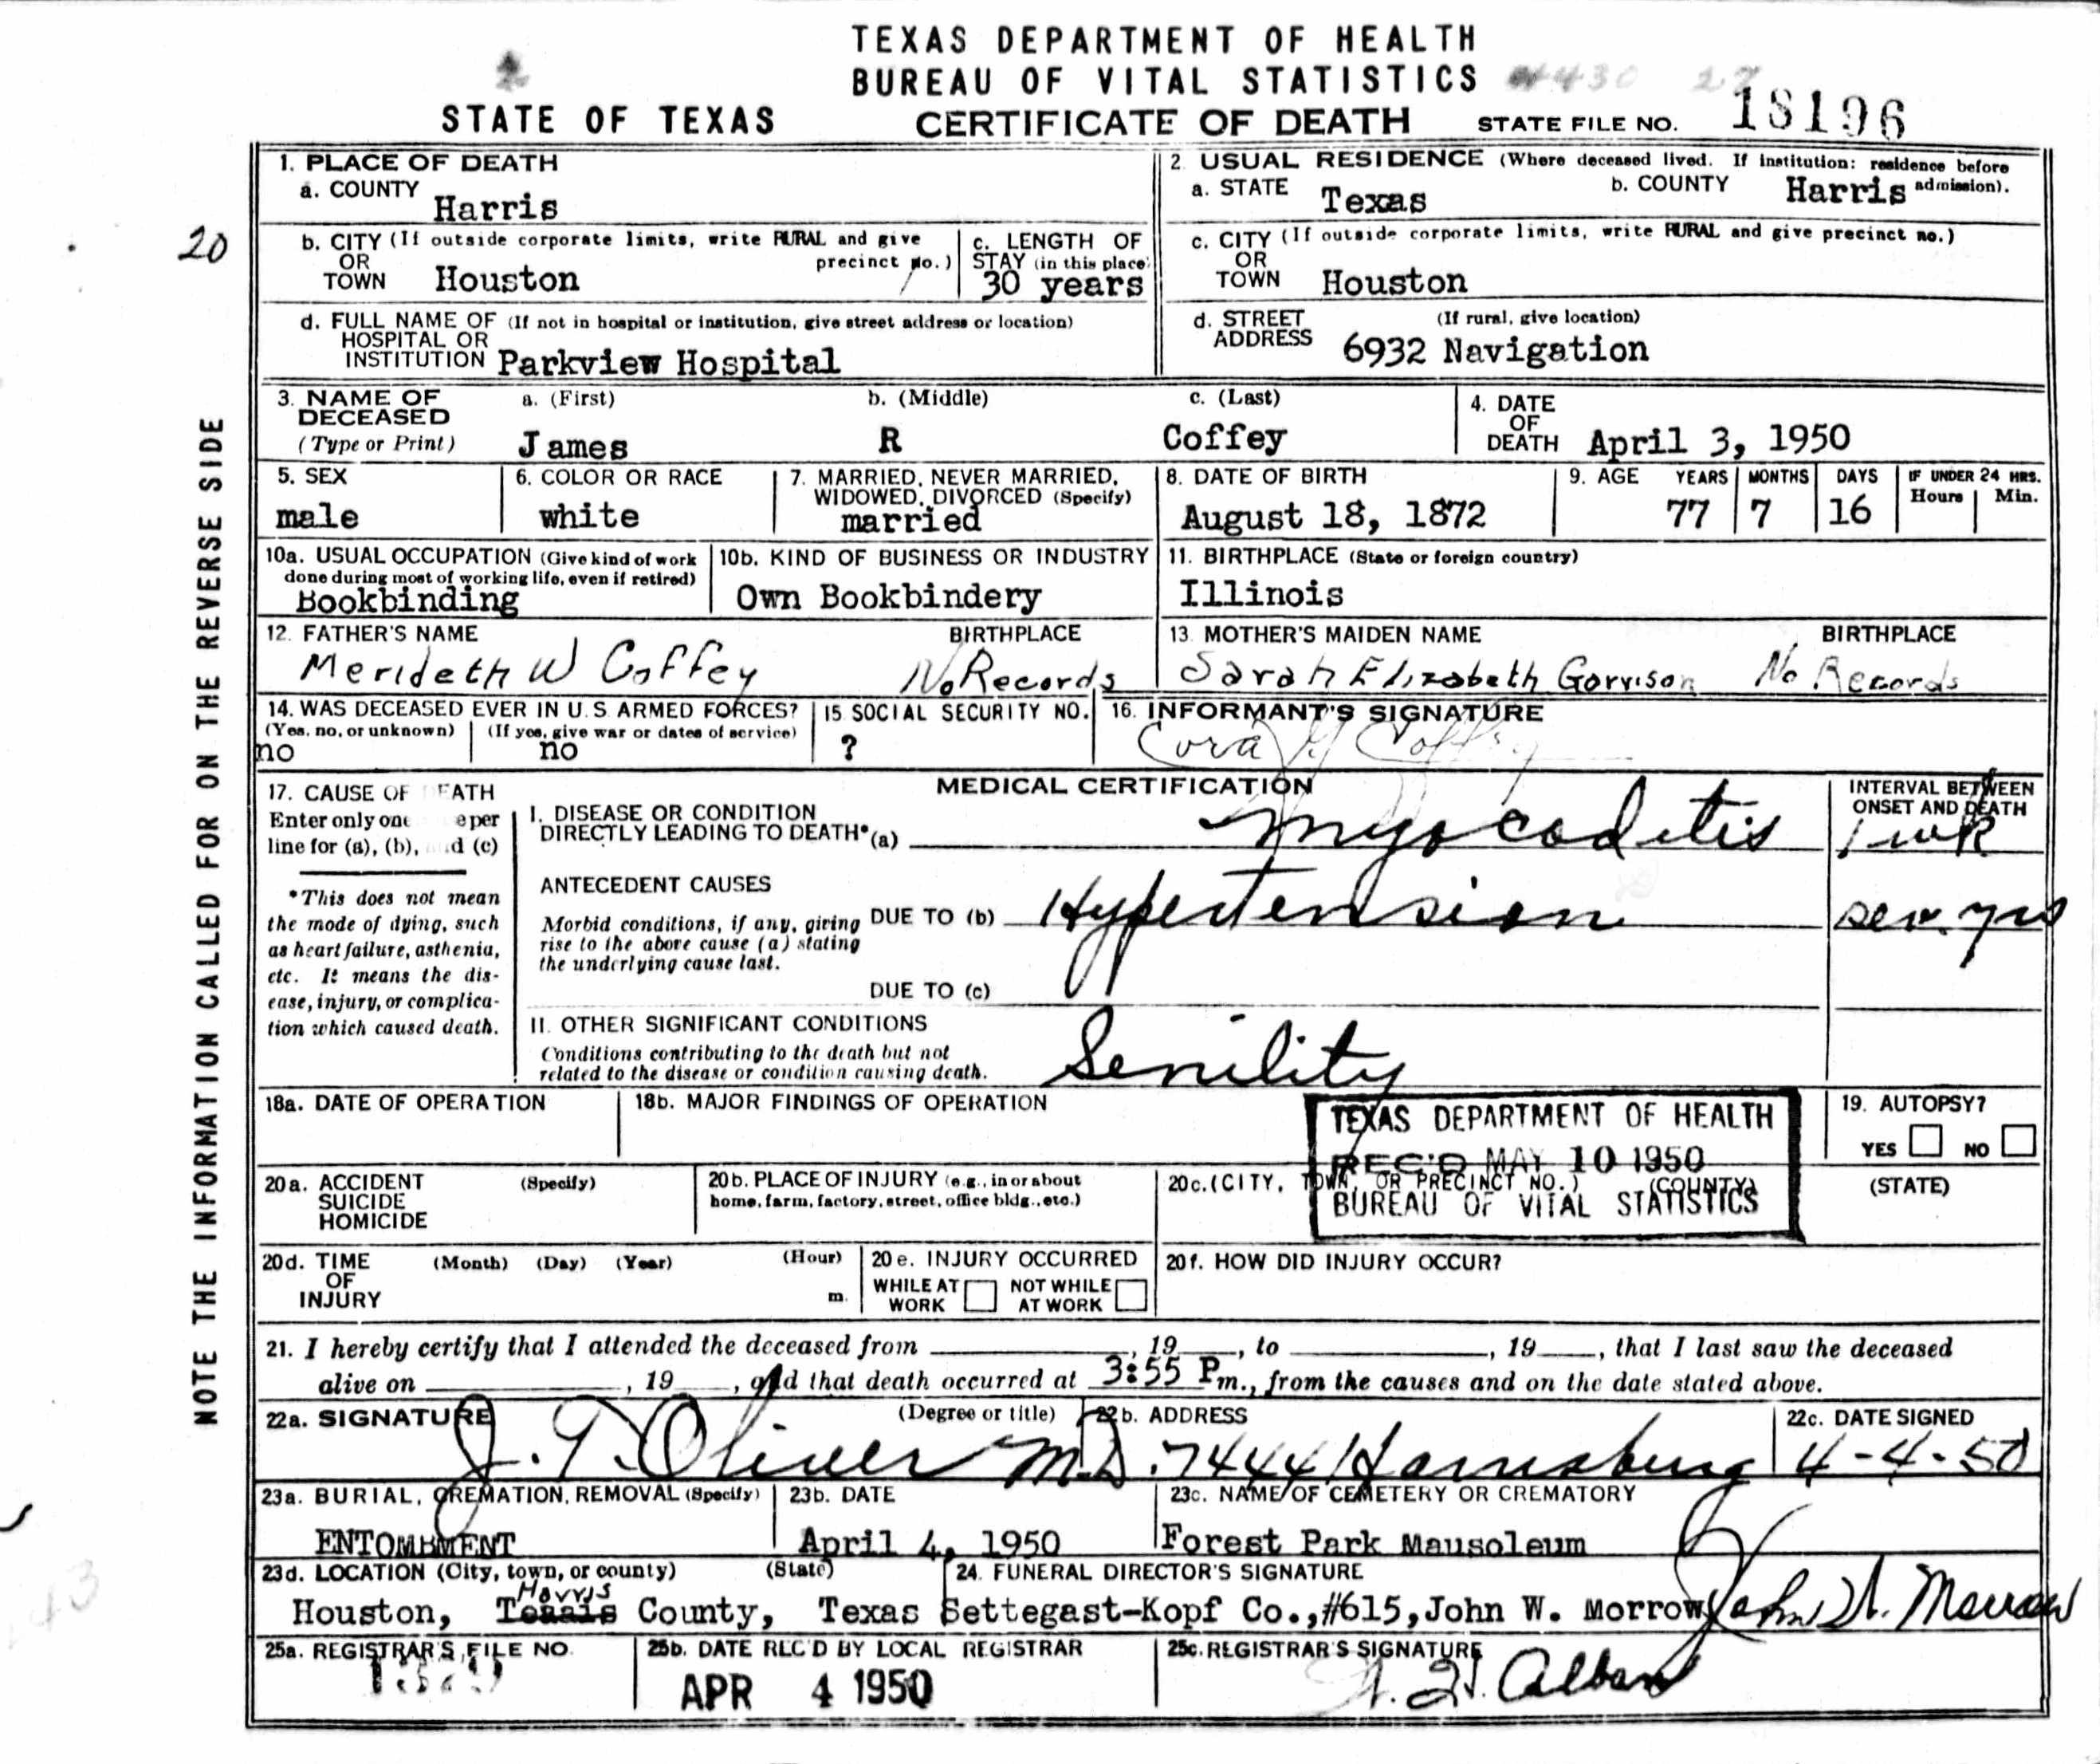 TEXAS DEPARTMENT OF HEALTH
BUREAU OF VITAL STATISTICS
STATE OF TEXAS CERTIFICATE OF DEATH STATE FILE NO. 18196
NOTE THE INFORMATION CALLED FOR ON THE REVERSE SIDE
20
1. PLACE OF DEATH
a. COUNTY Harris
2. USUAL RESIDENCE (Where deceased lived. If institution: residence before admission).
a. STATE Texas b. COUNTY Harris
b. CITY (If outside corporate limits, write RURAL and give precinct no.)
OR
TOWN Houston
c. LENGTH OF
STAY (in this place)
30 years
c. CITY (If outside corporate limits, write RURAL and give precinct no.)
OR
TOWN Houston
d. FULL NAME OF (If not in hospital or institution, give street address or location)
HOSPITAL OR
INSTITUTION Parkview Hospital
d. STREET (If rural, give location)
ADDRESS 6932 Navigation
3. NAME OF a. (First) b. (Middle) c. (Last)
DECEASED
(Type or Print) James R Coffey
4. DATE
OF
DEATH April 3, 1950
5. SEX
male
6. COLOR OR RACE
white
7. MARRIED, NEVER MARRIED,
WIDOWED, DIVORCED (Specify)
married
8. DATE OF BIRTH
August 18, 1872
9. AGE YEARS MONTHS DAYS IF UNDER 24 HRS.
Hours Min.
77 7 16
10a. USUAL OCCUPATION (Give kind of work
done during most of working life, even if retired)
Bookbinding
10b. KIND OF BUSINESS OR INDUSTRY
Own Bookbindery
11. BIRTHPLACE (State or foreign country)
Illinois
12. FATHER'S NAME BIRTHPLACE
Merideth W Coffey No Records
13. MOTHER'S MAIDEN NAME BIRTHPLACE
Sarah Elizabeth Gorrison No Records
14. WAS DECEASED EVER IN U.S. ARMED FORCES?
(Yes, no, or unknown) (If yes, give war or dates of service)
no no
15. SOCIAL SECURITY NO.
?
16. INFORMANT'S SIGNATURE
Cora Coffey
MEDICAL CERTIFICATION
17. CAUSE OF EATH
Enter only one e per
line for (a), (b), d (c)
*This does not mean
the mode of dying, such
as heart failure, asthenia,
etc. It means the dis-
ease, injury, or complica-
tion which caused death.
I. DISEASE OR CONDITION
DIRECTLY LEADING TO DEATH* (a) Myocaditis
INTERVAL BETWEEN
ONSET AND DEATH
1 wk
ANTECEDENT CAUSES
Morbid conditions, if any, giving
rise to the above cause (a) stating
the underlying cause last.
DUE TO (b) Hypertension sev. yrs
DUE TO (c)
II. OTHER SIGNIFICANT CONDITIONS
Conditions contributing to the death but not
related to the disease or condition causing death.
Senility
18a. DATE OF OPERATION
18b. MAJOR FINDINGS OF OPERATION
19. AUTOPSY?
YES NO
TEXAS DEPARTMENT OF HEALTH
REC'D MAY 10 1950
BUREAU OF VITAL STATISTICS
20a. ACCIDENT (Specify)
SUICIDE
HOMICIDE
20b. PLACE OF INJURY (e.g., in or about
home, farm, factory, street, office bldg., etc.)
20c. (CITY, TOWN, OR PRECINCT NO.) (COUNTY) (STATE)
20d. TIME (Month) (Day) (Year) (Hour)
OF
INJURY m.
20e. INJURY OCCURRED
WHILE AT WORK NOT WHILE AT WORK
20f. HOW DID INJURY OCCUR?
21. I hereby certify that I attended the deceased from , 19 , to , 19 , that I last saw the deceased
alive on , 19 , and that death occurred at 3:55 P m., from the causes and on the date stated above.
22a. SIGNATURE (Degree or title)
J. T. Oliver M.D.
22b. ADDRESS
7444 Harrisburg
22c. DATE SIGNED
4-4-50
23a. BURIAL, CREMATION, REMOVAL (Specify)
ENTOMBMENT
23b. DATE
April 4, 1950
23c. NAME OF CEMETERY OR CREMATORY
Forest Park Mausoleum
23d. LOCATION (City, town, or county) (State)
Harris
Houston, County, Texas
24. FUNERAL DIRECTOR'S SIGNATURE
Settegast-Kopf Co., #615, John W. Morrow John W. Morrow
25a. REGISTRAR'S FILE NO.
25b. DATE REC'D BY LOCAL REGISTRAR
APR 4 1950
25c. REGISTRAR'S SIGNATURE
Alban